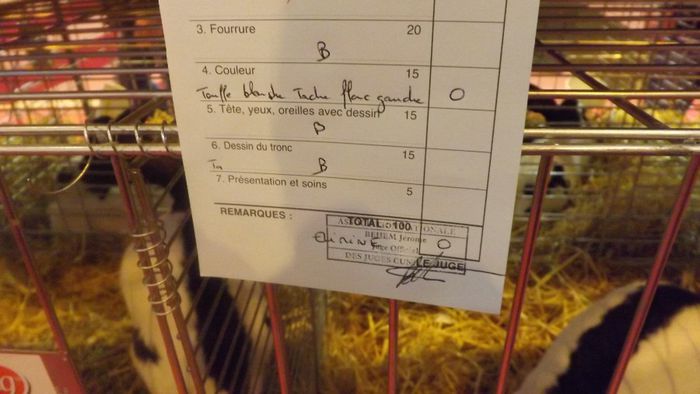 3. Fourrure 20
B
4. Couleur 15
Touffe blanche Tache flanc gauche O
5. Tête, yeux, oreilles avec dessin 15
B
6. Dessin du tronc 15
B
7. Présentation et soins 5
REMARQUES :
TOTAL : 100
BEHEM Jérome O
Juge Officiel
DES JUGES LE JUGE
9